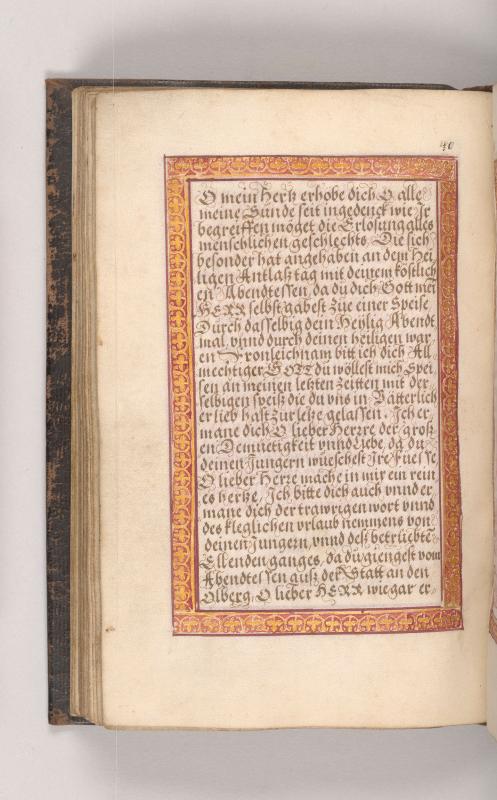 40
O mein Hertz erhobe dich O alle
meine Sünde seit ingedenck wie Ir
begreiffen möget die Erlösung alles
menschlichen geschlechts. Die sich
besonder hat angehaben an dem Hei-
ligen Antlaßtag mit deinem köstlich
en Abendtessen, da du dich Gott mein
HERR selbst gabest zue einer Speise
Durch dasselbig dein Heylig Abendt
mal, vnnd durch deinen heiligen war
en Fronleichnam bitt ich dich All
mechtiger GOTT du wöllest mich Spei
sen an meinen letsten Zeitten mit der
selbigen speiß die du vns in Vätterlich
er lieb hast zur letze gelassen. Ich er
mane dich O lieber Herrre der groß
en Demuetigkeit vnnd Liebe, da du
deinen Jungern wueschest Ire Fuesse
O lieber Herre mache in mir ein rein
es hertze, Ich bitte dich auch vnnd er
mane dich der trawrigen wort vnnd
des kleglichen vrlaub nemmens von
deinen Jungern, vnnd deß betrliebten
Ellenden ganges, da du giengest vom
Abendtessen auß der Statt an den
Ölberg, O lieber HERR wie gar er-